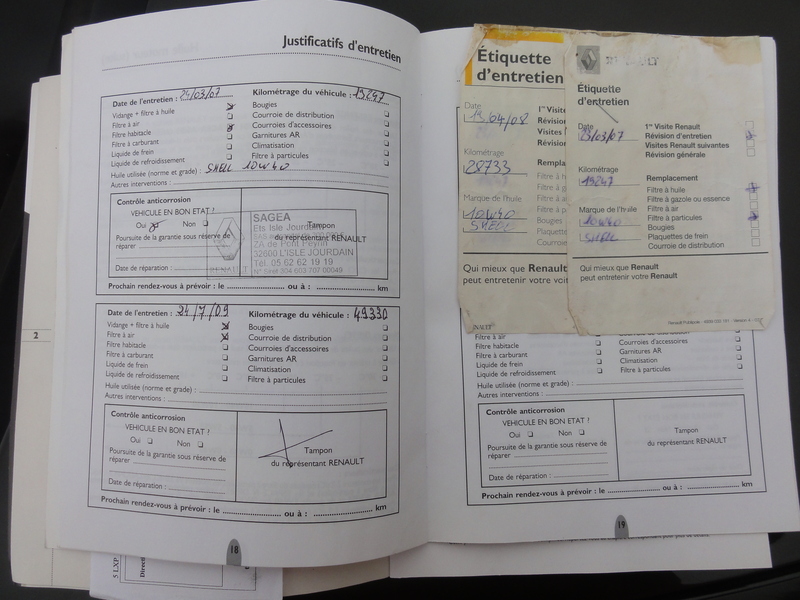 Justificatifs d'entretien
Date de l'entretien : 24/03/07 Kilométrage du véhicule : 19247
Vidange + filtre à huile Bougies
Filtre à air Courroie de distribution
Filtre habitacle Courroies d'accessoires
Filtre à carburant Garnitures AR
Liquide de frein Climatisation
Liquide de refroidissement Filtre à particules
Huile utilisée (norme et grade) : SHELL 10W40
Autres interventions :
Contrôle anticorrosion
VEHICULE EN BON ETAT ?
Oui Non
Poursuite de la garantie sous réserve de
réparer
Date de réparation :
SAGEA
Ets Isle Jourdain
ZA de Pont Peyrin
32600 L'ISLE JOURDAIN
Tél. 05 62 62 19 19
RENAULT
Tampon
du représentant RENAULT
Prochain rendez-vous à prévoir : le ou à : km
Date de l'entretien : 24/7/09 Kilométrage du véhicule : 49330
Vidange + filtre à huile Bougies
Filtre à air Courroie de distribution
Filtre habitacle Courroies d'accessoires
Filtre à carburant Garnitures AR
Liquide de frein Climatisation
Liquide de refroidissement Filtre à particules
Huile utilisée (norme et grade) :
Autres interventions :
Contrôle anticorrosion
VEHICULE EN BON ETAT ?
Oui Non
Poursuite de la garantie sous réserve de
réparer
Date de réparation :
Tampon
du représentant RENAULT
Prochain rendez-vous à prévoir : le ou à : km
18
2
5 LXP
Étiquette
d'entretien
Date
1re Visite
Révision
Visites
Révision
Kilométrage
28733
Rempla
Filtre à h
Filtre à g
Filtre à
Marque de l'huile
10W40
SHELL
Filtre à
Bougies
Plaquet
Courroie
Qui mieux que Renault
peut entretenir votre voi
Étiquette
d'entretien
Date
23/03/07
1re Visite Renault
Révision d'entretien
Visites Renault suivantes
Révision générale
Kilométrage
19247
Remplacement
Filtre à huile
Filtre à gazole ou essence
Filtre à air
Marque de l'huile
10W40
SHELL
Filtre à particules
Bougies
Plaquettes de frein
Courroie de distribution
Qui mieux que Renault
peut entretenir votre Renault
Filtre à air Courroie de distribution
Filtre habitacle Courroies d'accessoires
Filtre à carburant Garnitures AR
Liquide de frein Climatisation
Liquide de refroidissement Filtre à particules
Huile utilisée (norme et grade) :
Autres interventions :
Contrôle anticorrosion
VEHICULE EN BON ETAT ?
Oui Non
Poursuite de la garantie sous réserve de
réparer
Date de réparation :
Tampon
du représentant RENAULT
Prochain rendez-vous à prévoir : le ou à : km
19